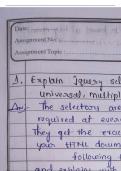 Date:
Assignment No:
Assignment Topic:
1. Explain Jquery sel
universal, multipl
Ans- The selectors are
required at ever
They get the exac
your HTML docum
following
and explains with